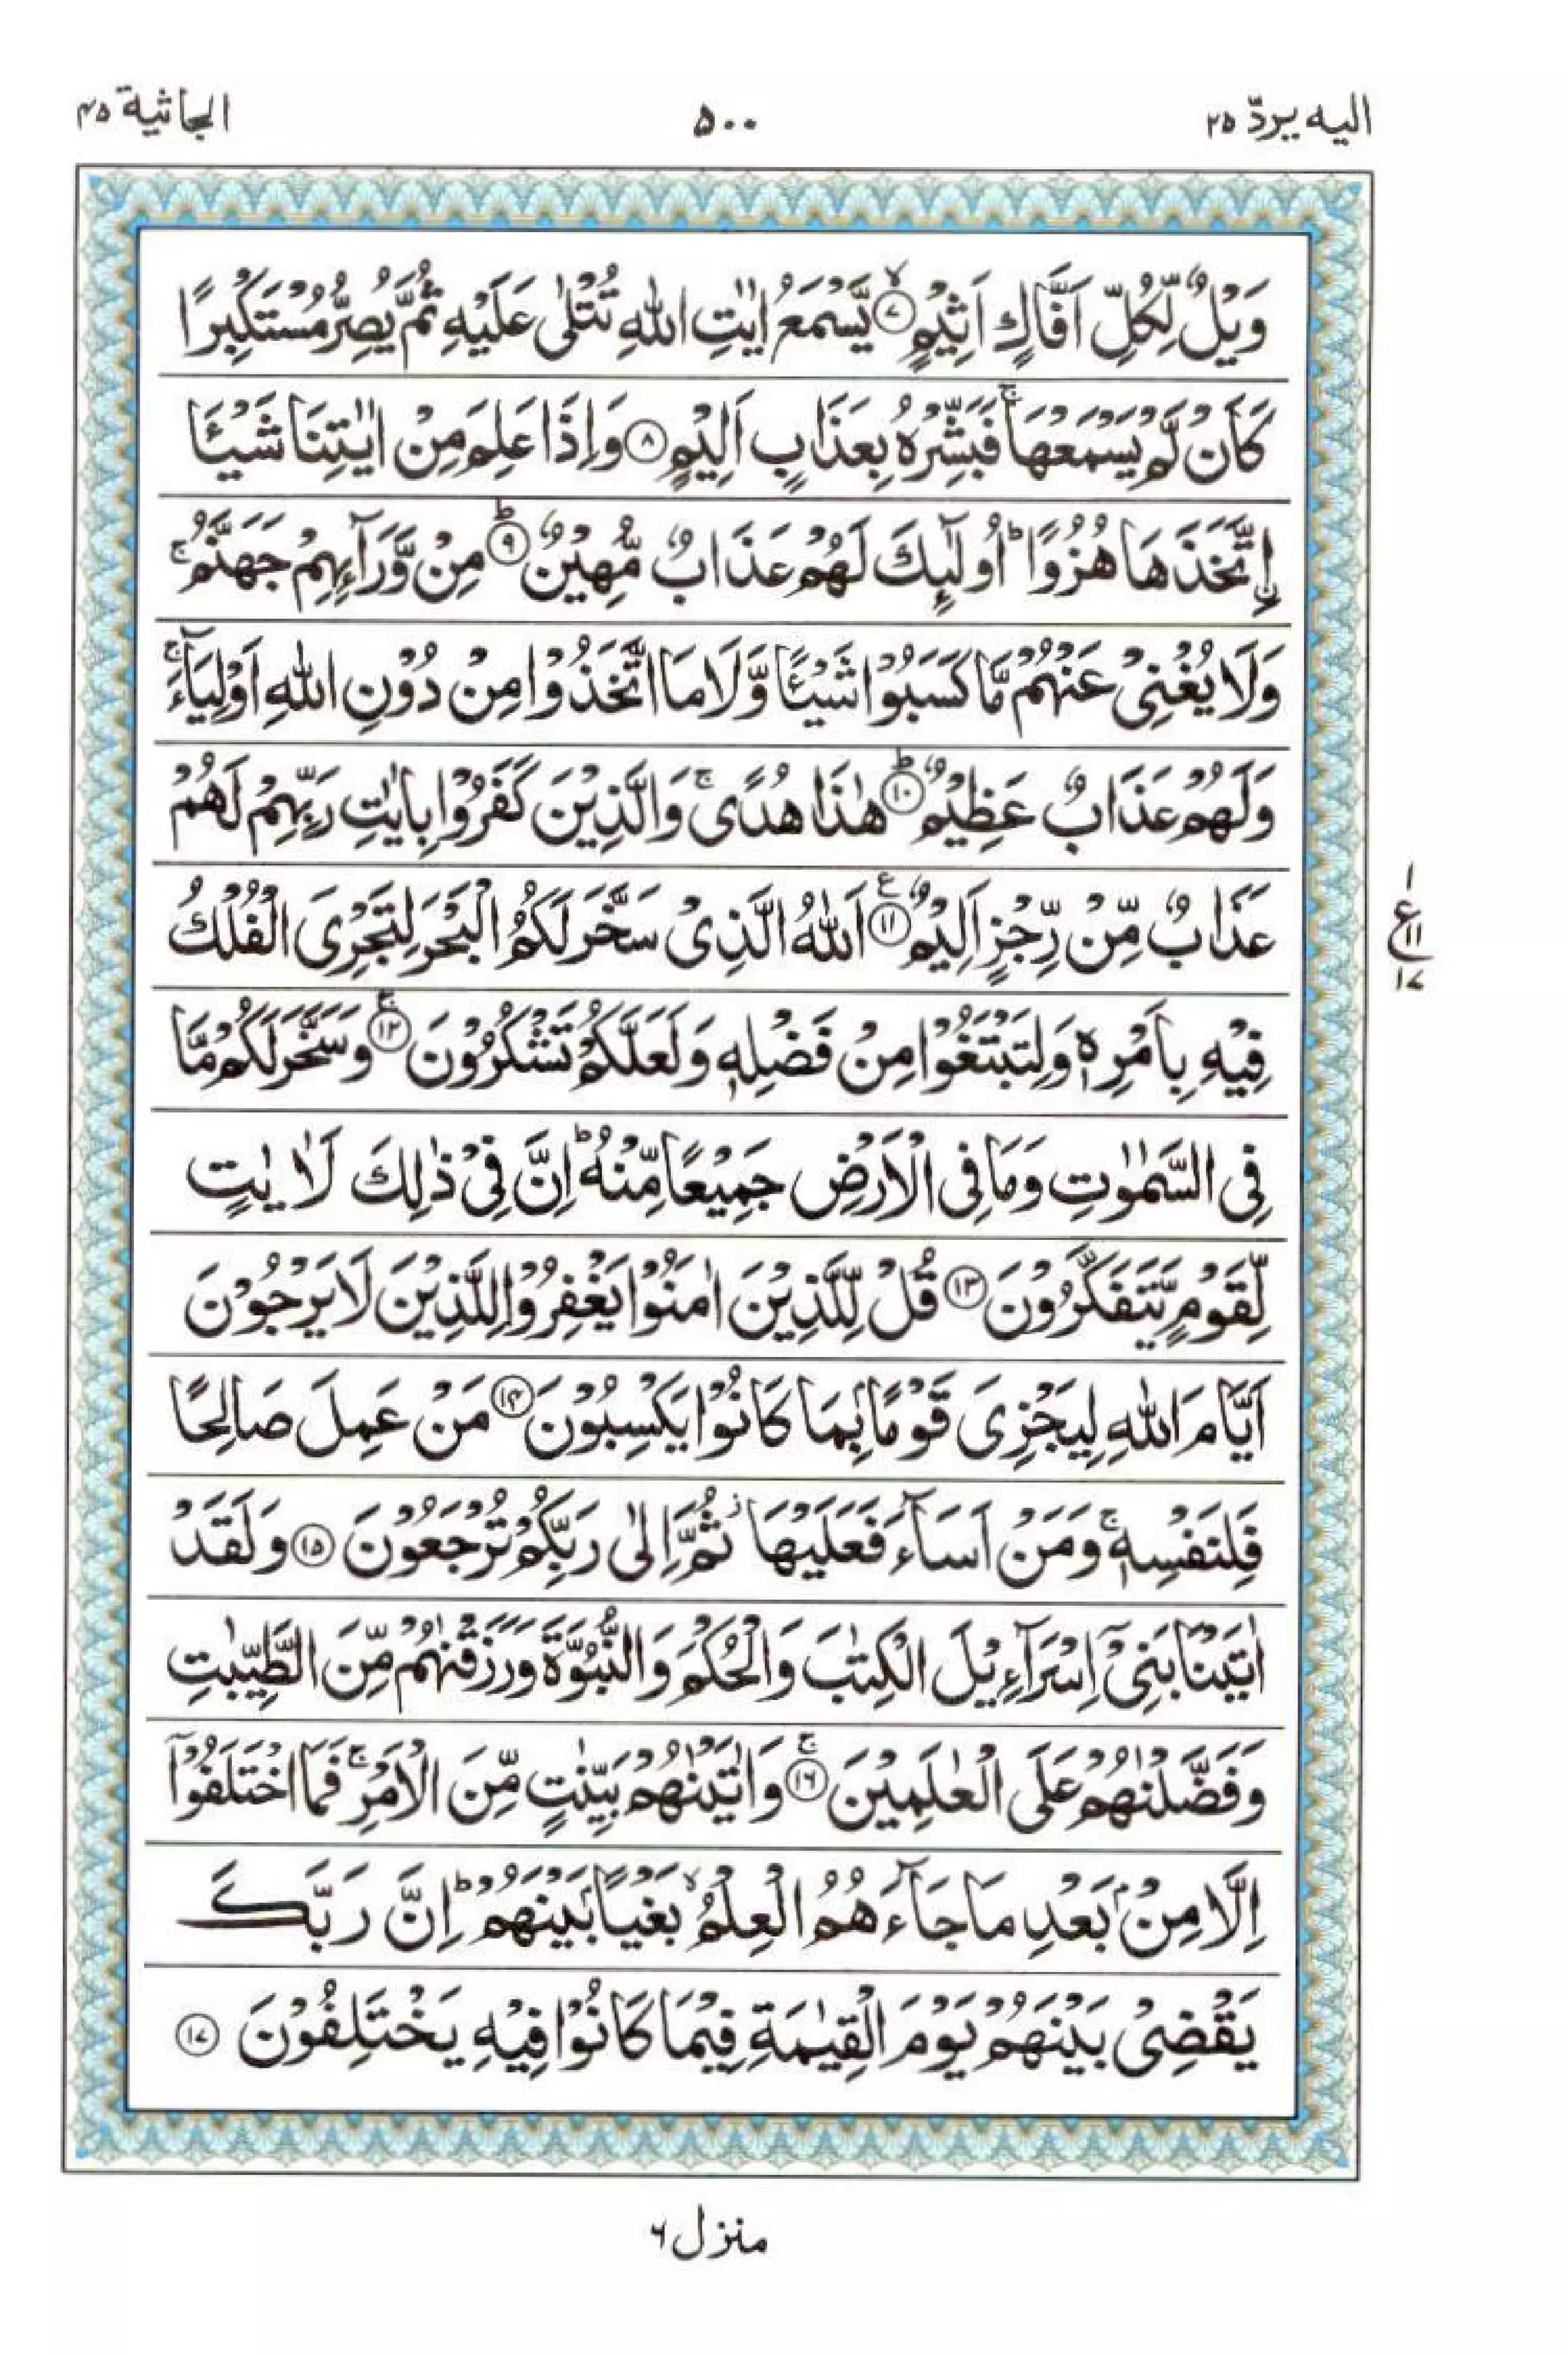 الیه یردّ ۲۵
۵۰۰
الجاثیة ۴۵
وَيْلٌ لِّكُلِّ اَفَّاكٍ اَثِيْمٍ ۙ﴿۷﴾ يَّسْمَعُ اٰيٰتِ اللّٰهِ تُتْلٰى عَلَيْهِ ثُمَّ يُصِرُّ مُسْتَكْبِرًا
كَاَنْ لَّمْ يَسْمَعْهَا ۚ فَبَشِّرْهُ بِعَذَابٍ اَلِيْمٍ ﴿۸﴾ وَاِذَا عَلِمَ مِنْ اٰيٰتِنَا شَيْـًٔا
اِۨتَّخَذَهَا هُزُوًا ؕ اُولٰٓئِكَ لَهُمْ عَذَابٌ مُّهِيْنٌ ؕ﴿۹﴾ مِنْ وَّرَآئِهِمْ جَهَنَّمُ ۚ
وَلَا يُغْنِىْ عَنْهُمْ مَّا كَسَبُوْا شَيْـًٔا وَّلَا مَا اتَّخَذُوْا مِنْ دُوْنِ اللّٰهِ اَوْلِيَآءَ ۚ
وَلَهُمْ عَذَابٌ عَظِيْمٌ ؕ﴿۱۰﴾ هٰذَا هُدًى ۚ وَالَّذِيْنَ كَفَرُوْا بِاٰيٰتِ رَبِّهِمْ لَهُمْ
عَذَابٌ مِّنْ رِّجْزٍ اَلِيْمٌ ﴿۱۱﴾ ع اَللّٰهُ الَّذِىْ سَخَّرَ لَكُمُ الْبَحْرَ لِتَجْرِىَ الْفُلْكُ
۱
ع
۱۱
۱۷
فِيْهِ بِاَمْرِهٖ وَلِتَبْتَغُوْا مِنْ فَضْلِهٖ وَلَعَلَّكُمْ تَشْكُرُوْنَ ۚ﴿۱۲﴾ وَسَخَّرَ لَكُمْ مَّا
فِى السَّمٰوٰتِ وَمَا فِى الْاَرْضِ جَمِيْعًا مِّنْهُ ؕ اِنَّ فِىْ ذٰلِكَ لَاٰيٰتٍ
لِّقَوْمٍ يَّتَفَكَّرُوْنَ ﴿۱۳﴾ قُلْ لِّلَّذِيْنَ اٰمَنُوْا يَغْفِرُوْا لِلَّذِيْنَ لَا يَرْجُوْنَ
اَيَّامَ اللّٰهِ لِيَجْزِىَ قَوْمًۢا بِمَا كَانُوْا يَكْسِبُوْنَ ﴿۱۴﴾ مَنْ عَمِلَ صَالِحًا
فَلِنَفْسِهٖ ۚ وَمَنْ اَسَآءَ فَعَلَيْهَا ؗ ثُمَّ اِلٰى رَبِّكُمْ تُرْجَعُوْنَ ﴿۱۵﴾ وَلَقَدْ
اٰتَيْنَا بَنِىْۤ اِسْرَآءِيْلَ الْكِتٰبَ وَالْحُكْمَ وَالنُّبُوَّةَ وَرَزَقْنٰهُمْ مِّنَ الطَّيِّبٰتِ
وَفَضَّلْنٰهُمْ عَلَى الْعٰلَمِيْنَ ۚ﴿۱۶﴾ وَاٰتَيْنٰهُمْ بَيِّنٰتٍ مِّنَ الْاَمْرِ ۚ فَمَا اخْتَلَفُوْۤا
اِلَّا مِنْۢ بَعْدِ مَا جَآءَهُمُ الْعِلْمُ ۙ بَغْيًۢا بَيْنَهُمْ ؕ اِنَّ رَبَّكَ
يَقْضِىْ بَيْنَهُمْ يَوْمَ الْقِيٰمَةِ فِيْمَا كَانُوْا فِيْهِ يَخْتَلِفُوْنَ ﴿۱۷﴾
منزل ۶